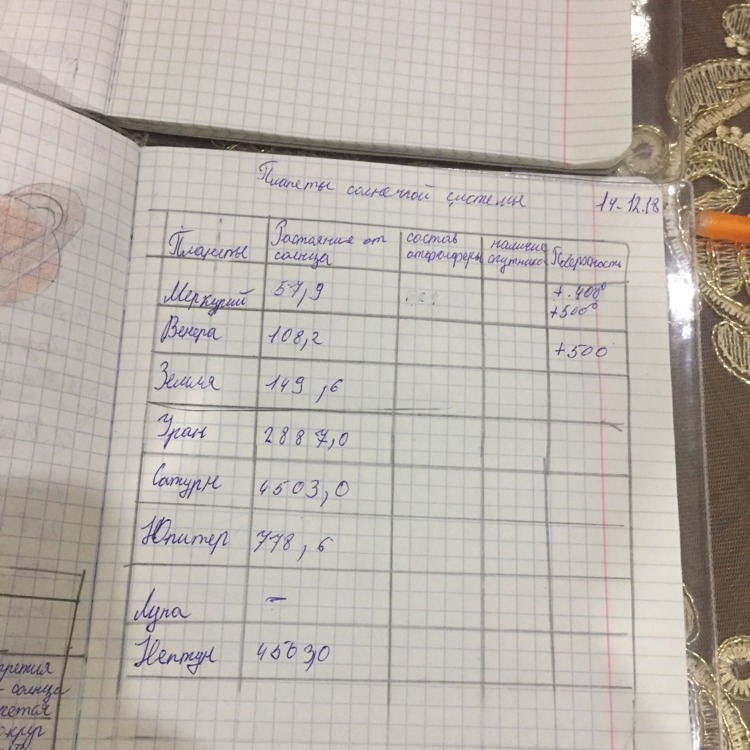 Планеты солнечной системы
14-12.18
Планеты
Растояние от
солнца
состав
атмосферы
наличие
спутника
Поверхность
Меркурий
57,9
+.400°
+500°
Венера
108,2
+500
Земля
149,6
Уран
2887,0
Сатурн
4503,0
Юпитер
778,6
Луна
–
Нептун
4503,0
солнца
округ